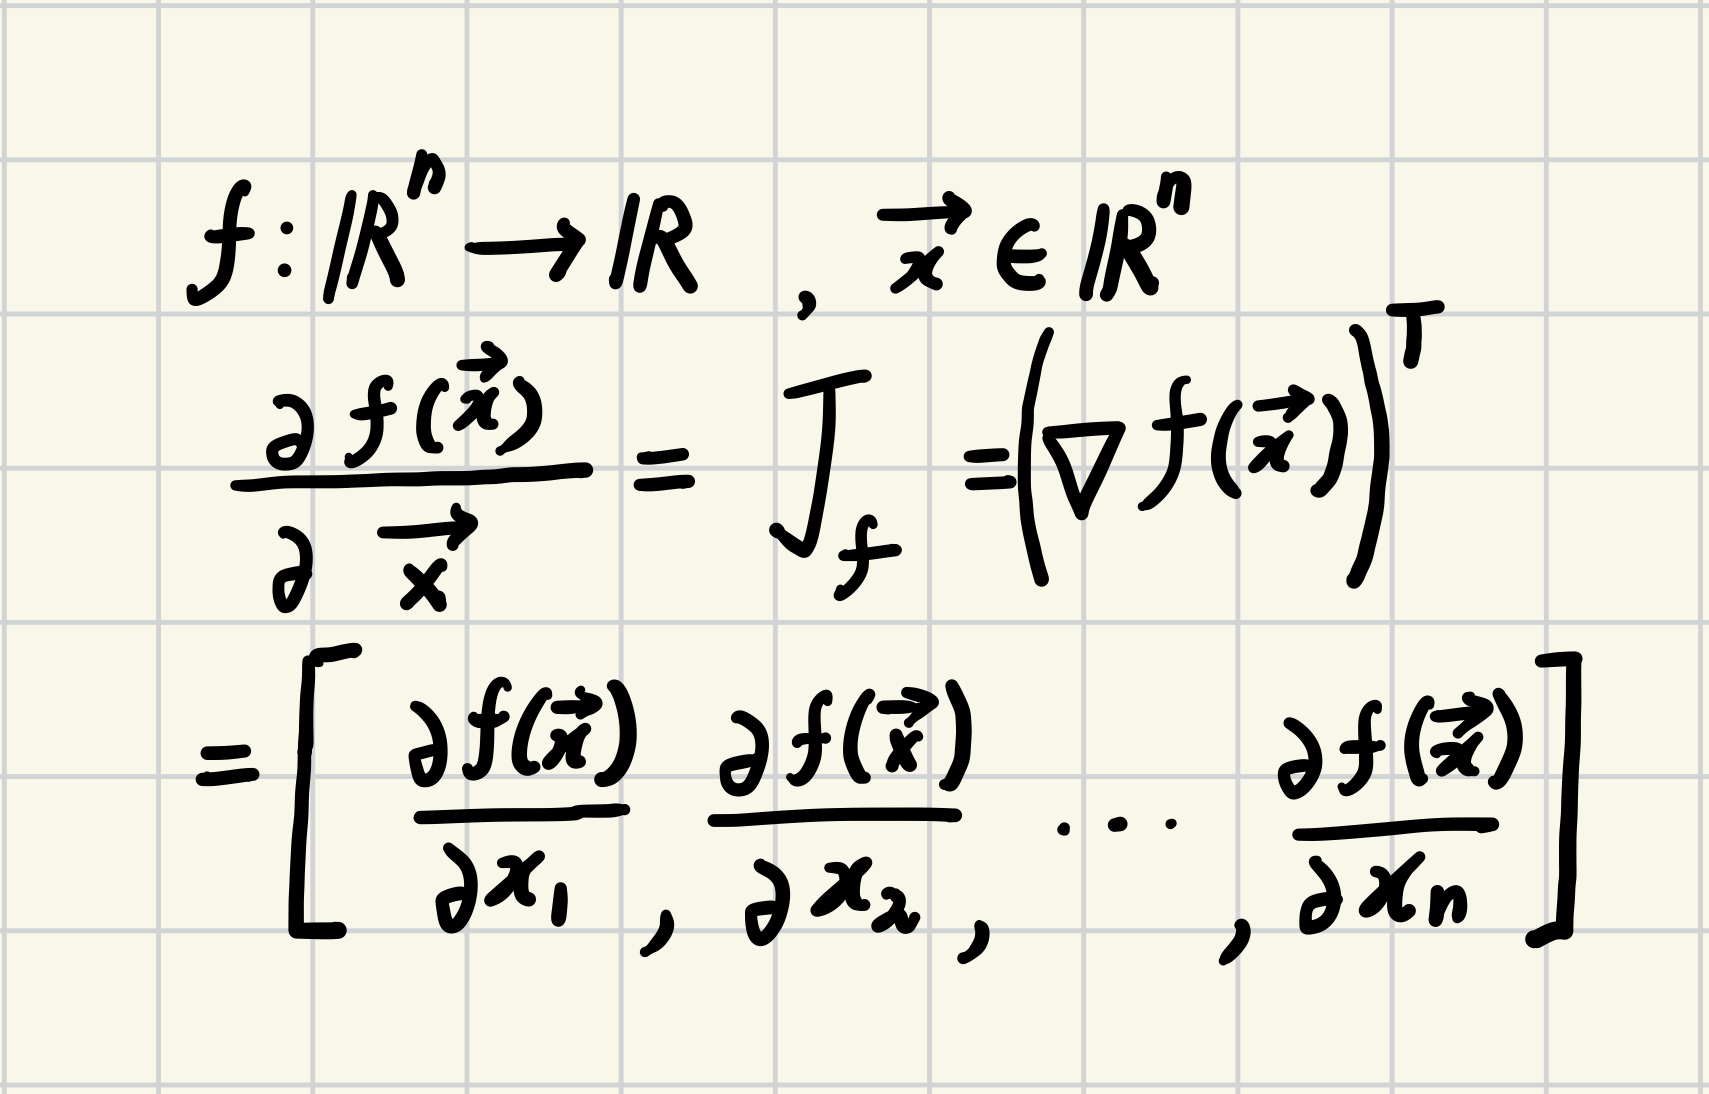 f : ℝⁿ → ℝ , x⃗ ∈ ℝⁿ
∂f(x⃗)/∂x⃗ = J_f = (∇f(x⃗))ᵀ
= [ ∂f(x⃗)/∂x₁ , ∂f(x⃗)/∂x₂ , ⋯ , ∂f(x⃗)/∂xₙ ]